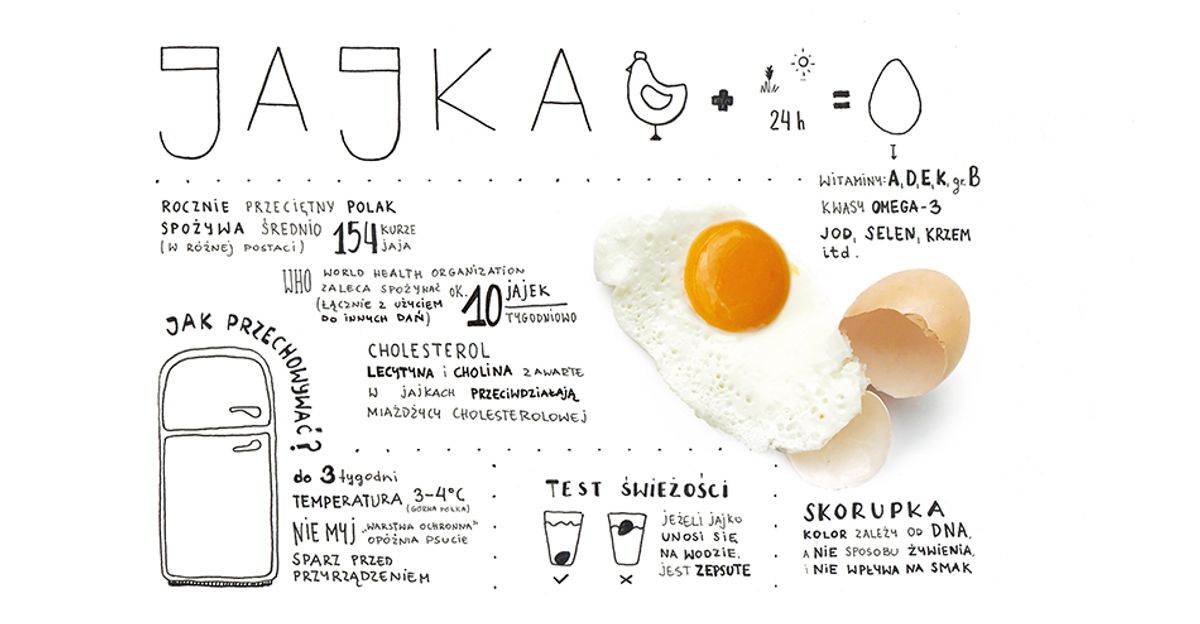 JAJKA
24 h
WITAMINY: A, D, E, K, gr. B
KWASY OMEGA-3
JOD, SELEN, KRZEM
itd.
ROCZNIE PRZECIĘTNY POLAK
SPOŻYWA ŚREDNIO 154 KURZE
(W RÓŻNEJ POSTACI) JAJA
WHO WORLD HEALTH ORGANIZATION
ZALECA SPOŻYWAĆ OK. 10 JAJEK
(ŁĄCZNIE Z UŻYCIEM
DO INNYCH DAŃ) TYGODNIOWO
CHOLESTEROL
LECYTYNA i CHOLINA ZAWARTE
W JAJKACH PRZECIWDZIAŁAJĄ
MIAŻDŻYCY CHOLESTEROLOWEJ
JAK PRZECHOWYWAĆ?
do 3 tygodni
TEMPERATURA 3-4°C
(GÓRNA PÓŁKA)
NIE MYJ „WARSTWA OCHRONNA"
OPÓŹNIA PSUCIE
SPARZ PRZED
PRZYRZĄDZENIEM
TEST ŚWIEŻOŚCI
JEŻELI JAJKO
UNOSI SIĘ
NA WODZIE,
JEST ZEPSUTE
SKORUPKA
KOLOR ZALEŻY OD DNA,
A NIE SPOSOBU ŻYWIENIA,
i NIE WPŁYWA NA SMAK